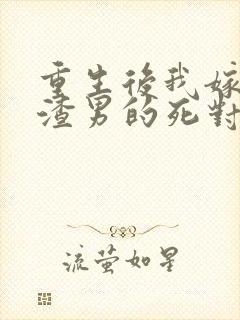 重生後我嫁
渣男的死對
流萤如星